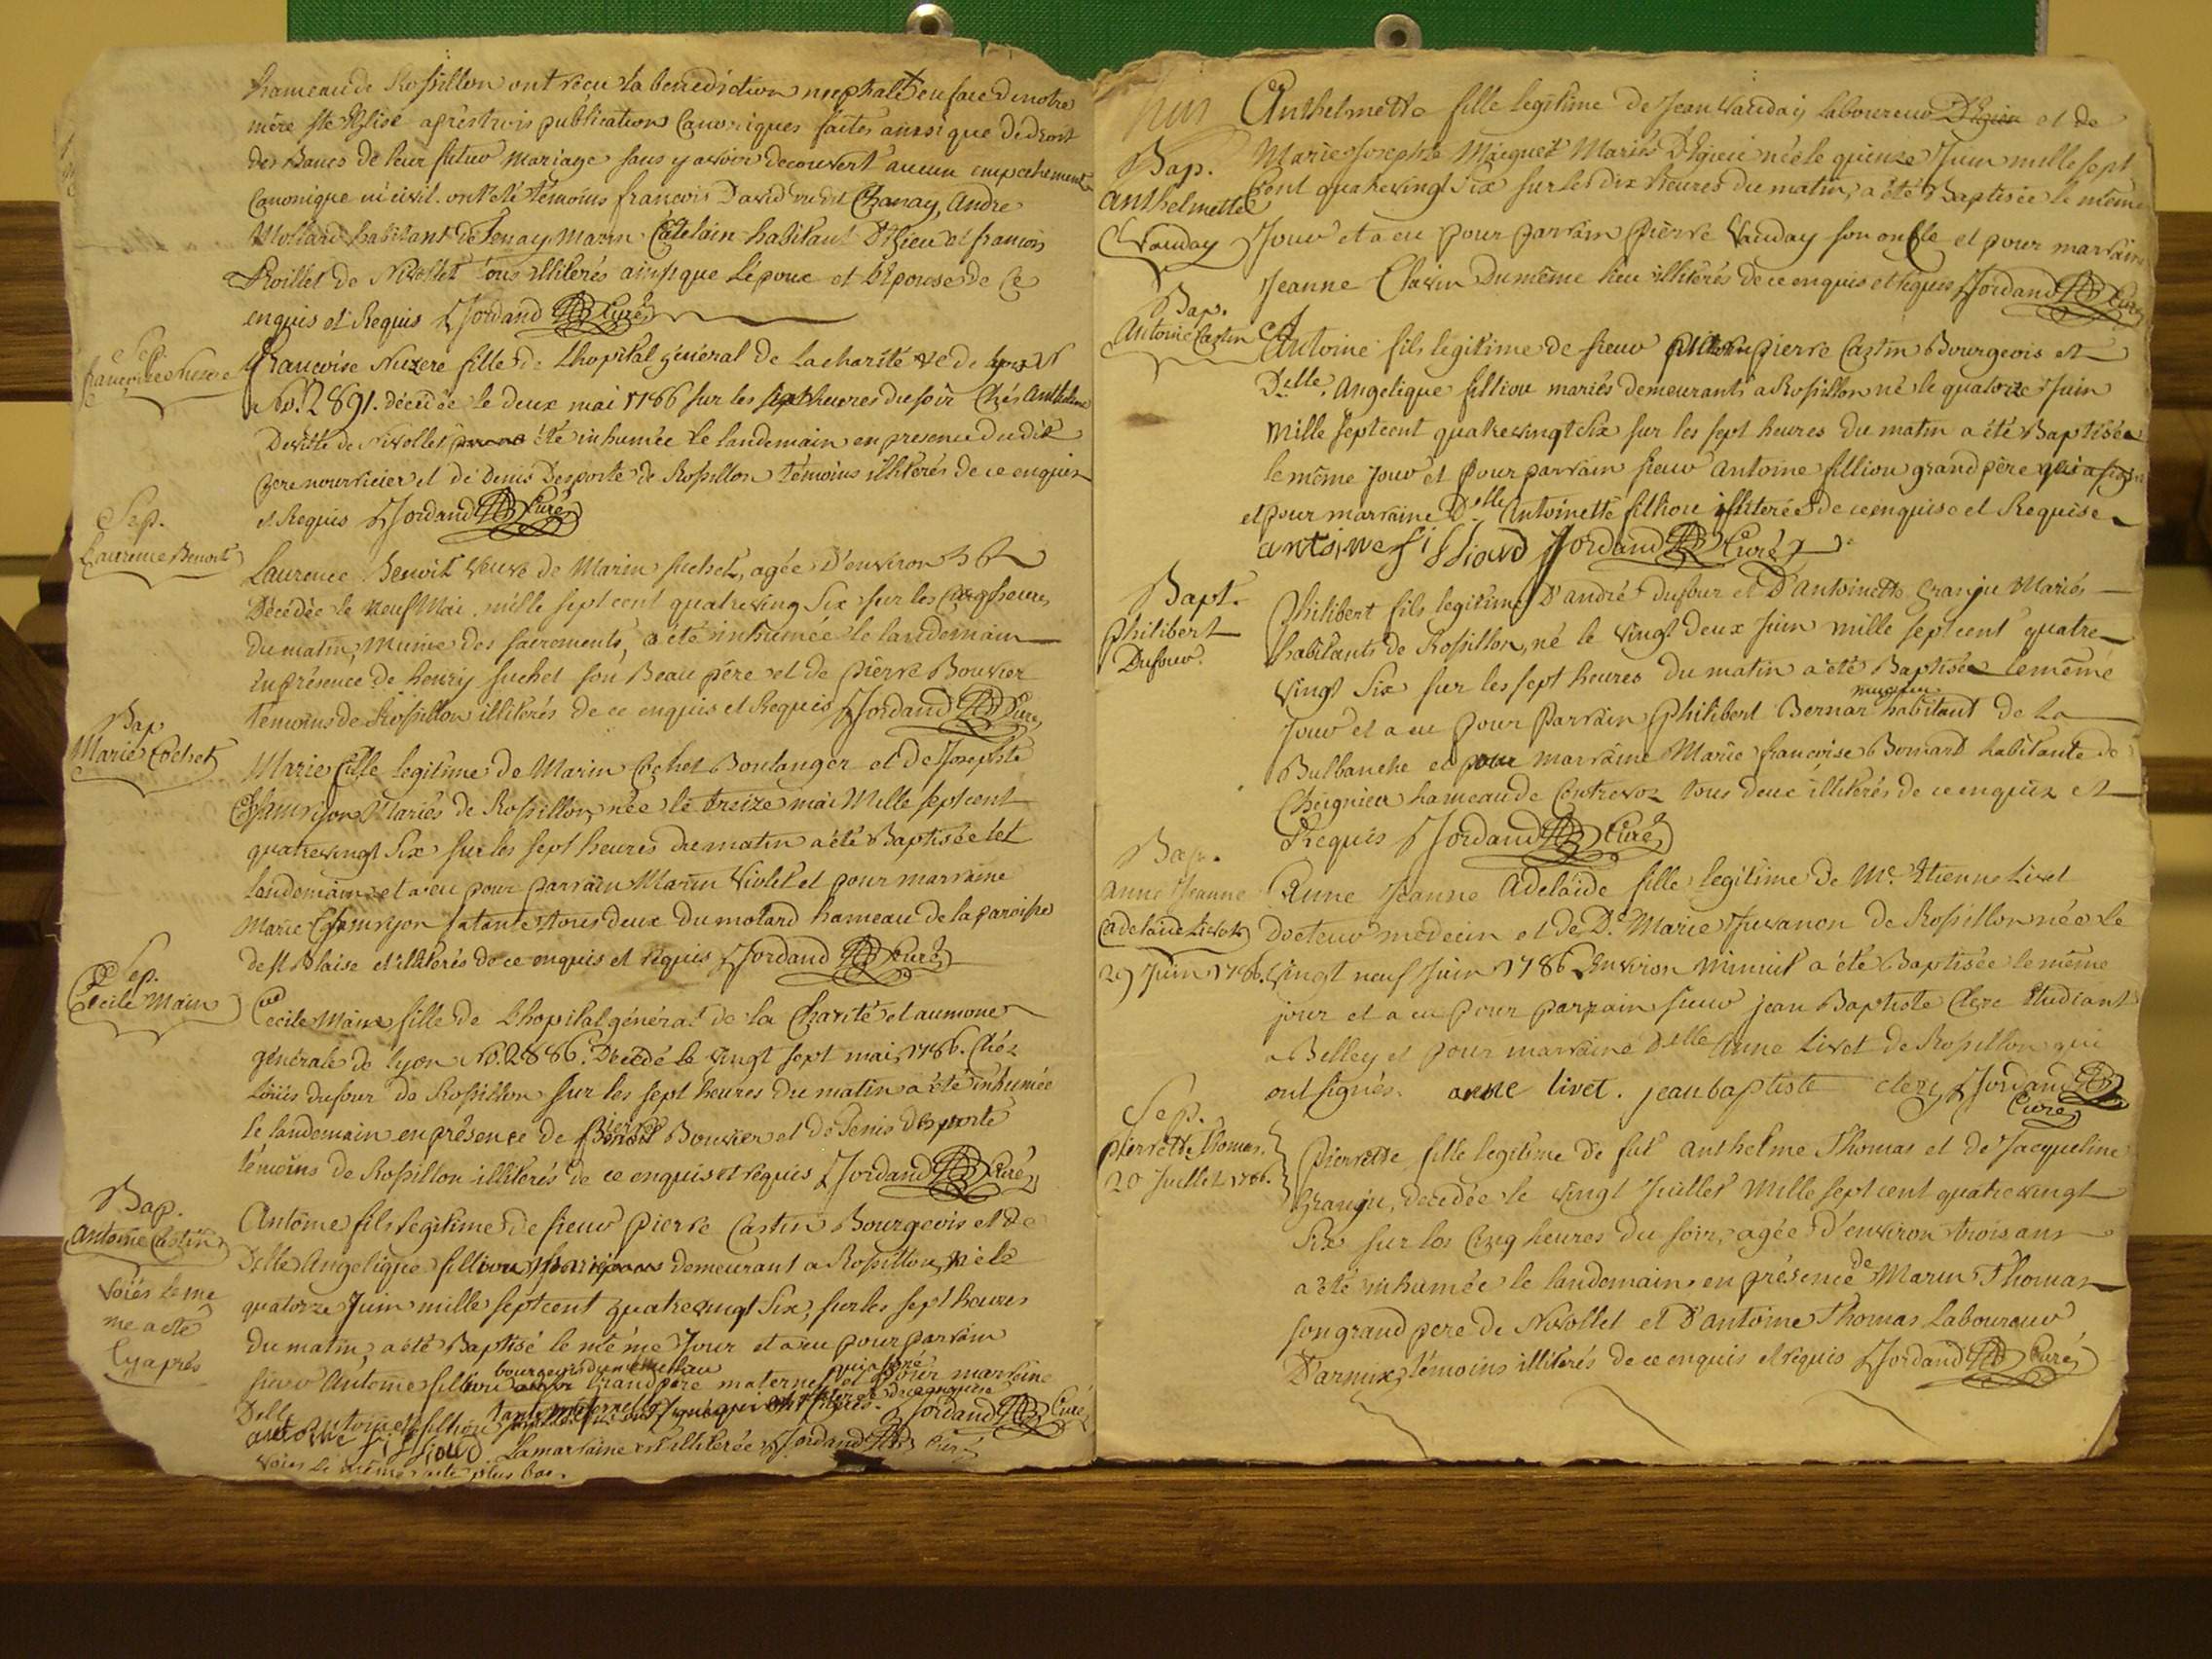 hameau de Rossillon ont reçu la benediction nuptiale en face de notre
mère Ste Eglise après trois publications Canoniques faites ainsi que de droit
des Bancs de leur futur Mariage sans y avoir decouvert aucun empechement
Canonique ni civil. ont été témoins françois David dit Chanay, andre
Mollard habitant de Tenay, Marin Catelain habitant D'Egieu et françois
Roillet de Nivollet tous illiterés ainsi que L'époux et L'Epouse de Ce
enquis et Requis Jordand Curé
Sep.
francoise Nuzere
francoise Nuzere fille de Lhopital général de la charité de Lyon
No. 2891. décédée le deux mai 1786 sur les sept heures du soir Chés Anthelme
Devitte de Nivollet été inhumée Le landemain en presence du dit
pere nourricier et de Denis Desporte de Rossillon témoins illiterés de ce enquis
et Requis Jordand Curé
Sep.
Laurence Benoit
Laurence Benoit veuve de Marin Suchet, agée D'environ
Décédée le neuf Mai mille sept cent quatreving Six sur les cinq heures
du matin, Munie des sacrements, a été inhumée le landemain
en présence de henrij suchet son Beau père et de pierre Bouvier
témoins de Rossillon illiterés de ce enquis et Requis Jordand Curé
Bap
Marie Cochet
Marie fille legitime de Marin Cochet Boulanger et de Josephte
Chamrijon Mariés de Rossillon, née le treize mai Mille sept cent
quatrevingt Six sur les sept heures du matin a été Baptisée let
landemain et a eu pour parrain Marin Violet et pour marraine
Marie Chamrijon sa tante tous deux du molard hameau de la paroisse
de St Blaise et illiterés de ce enquis et requis Jordand Curé
Sep.
Cecile Main
Cecile Main fille de Lhopital général de la Charité et aumone
générale de Lyon No. 2886. Décédé le vingt sept mai 1786. Chés
Louis dufour de Rossillon sur les sept heures du matin a été inhumée
le landemain en présence de pierre Bouvier et de Denis desporte
témoins de Rossillon illiterés de ce enquis et requis Jordand Curé
Bap.
Antoine Castin
Voiés le me
me acte
Cy après
Antoine fils legitime de sieur Pierre Castin Bourgeois et de
Delle Angelique fillion demeurant a Rossillon, né le
quatorze Juin mille sept cent quatrevingt Six, sur les sept heures
du matin, a été Baptisé le même Jour et a eu pour parrain
bourgeois du même lieu qui a signé
sieur Antoine fillion Grand père maternel et pour marraine
Delle Antoinette fillion tante maternelle Jordand Curé
antoine filliond La marraine est illiterée Jordand Curé
Voiés le même acte plus bas.
Anthelmette fille legitime de Jean Vauday Laboureur D'Egieu et de
Marie Josephte Miguet Mariés D'Egieu née le quinze Juin mille sept
Bap.
Anthelmette
Vauday
Cent quatrevingt Six sur les dix heures du matin, a été Baptisée le même
Jour et a eu pour parrain pierre Vauday son oncle et pour marraine
Jeanne Clavin du même lieu illiterés de ce enquis et requis Jordand Curé
Bap.
Antoine Castin
Antoine fils legitime de sieur pierre Castin Bourgeois et
Delle. Angelique fillion mariés demeurants a Rossillon né le quatorze Juin
Mille sept cent quatrevingt Six sur les sept heures du matin a été Baptisé
le même jour et pour parrain sieur Antoine fillion grand père qui a signé
et pour marraine Delle Antoinette fillion illiterée de ce enquise et Requise
antoine filliond Jordand Curé
Bapt.
Philibert
Dufour.
Philibert fils legitime D'andré dufour et D'Antoinette Granju Mariés
habitants de Rossillon, né le vingt deux Juin mille sept cent quatre
vingt Six sur les sept heures du matin a été Baptisé le même
Jour et a eu pour Parrain Philibert Bernar habitant de La
Bulbanche et pour marraine Marie francoise Bernard habitante de
Cheignieu hameau de Contrevoz tous deux illiterés de ce enquis et
Requis Jordand Curé
Bap.
Anne Jeanne
Adelaïde Livet
29 Juin 1786.
Anne Jeanne Adelaïde fille legitime de Me. Etienne Livet
Docteur médecin et de De. Marie Juvanon de Rossillon née le
vingt neuf Juin 1786 Environ Minuit a été Baptisée le même
jour et a eu pour parrain sieur jean Baptiste Clerc Etudiant
a Belley et pour marraine Delle Anne Livet de Rossillon qui
ont signés. anne livet. jean baptiste clerc Jordand
Curé
Sep.
pierrette Thomas.
20 Juillet 1786.
Pierrette fille legitime de fut Anthelme Thomas et de Jacqueline
Granju, decedée le vingt Juillet Mille sept cent quatrevingt
Six sur les Cinq heures du soir, agée d'environ trois ans
a été inhumée le landemain en présence de Marin Thomas
son grand pere de Nivollet et D'antoine Thomas Laboureur
D'armix, témoins illiterés de ce enquis et requis Jordand Curé